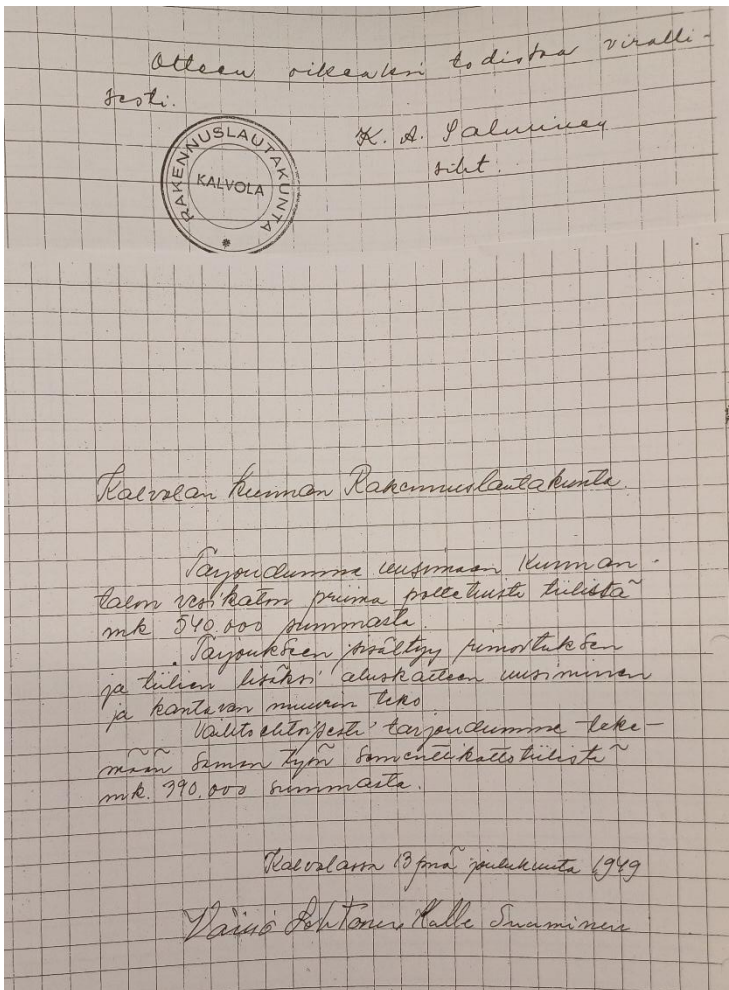 Otteen oikeaksi todistaa viralli-
sesti.
K. A. Salminen
siht.
RAKENNUSLAUTAKUNTA
KALVOLA
Kalvolan Kunnan Rakennuslautakunta.
Tarjoudumme uusimaan Kunnan-
talon vesikaton priima poltetuista tiilistä
mk 540.000 summasta.
Tarjoukseen sisältyy rimoituksen
ja tiilien lisäksi aluskatteen uusiminen
ja kantavan muurin teko
Vaihtoehtoisesti tarjoudumme teke-
mään saman työn sementtikattotiilistä
mk. 390.000 summasta.
Kalvolassa 13 pnä joulukuuta 1949
Väinö Lehtonen Kalle Suominen